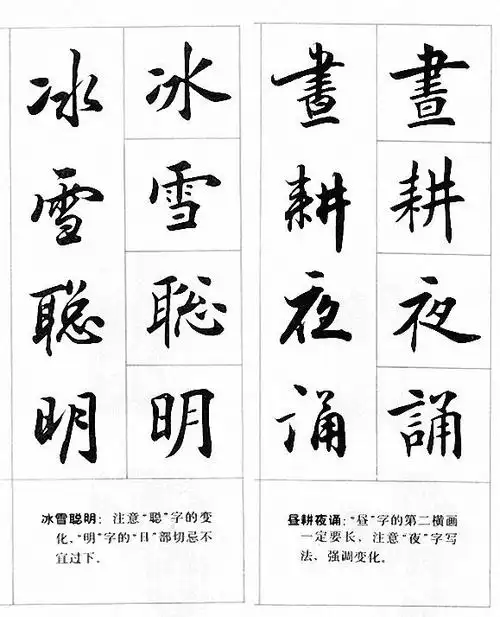 冰雪聪明
冰雪聪明
冰雪聪明：注意“聪”字的变
化，“明”字的“日”部切忌不
宜过下。
晝耕夜诵
晝耕夜誦
昼耕夜诵：“昼”字的第二横画
一定要长，注意“夜”字写
法，强调变化。